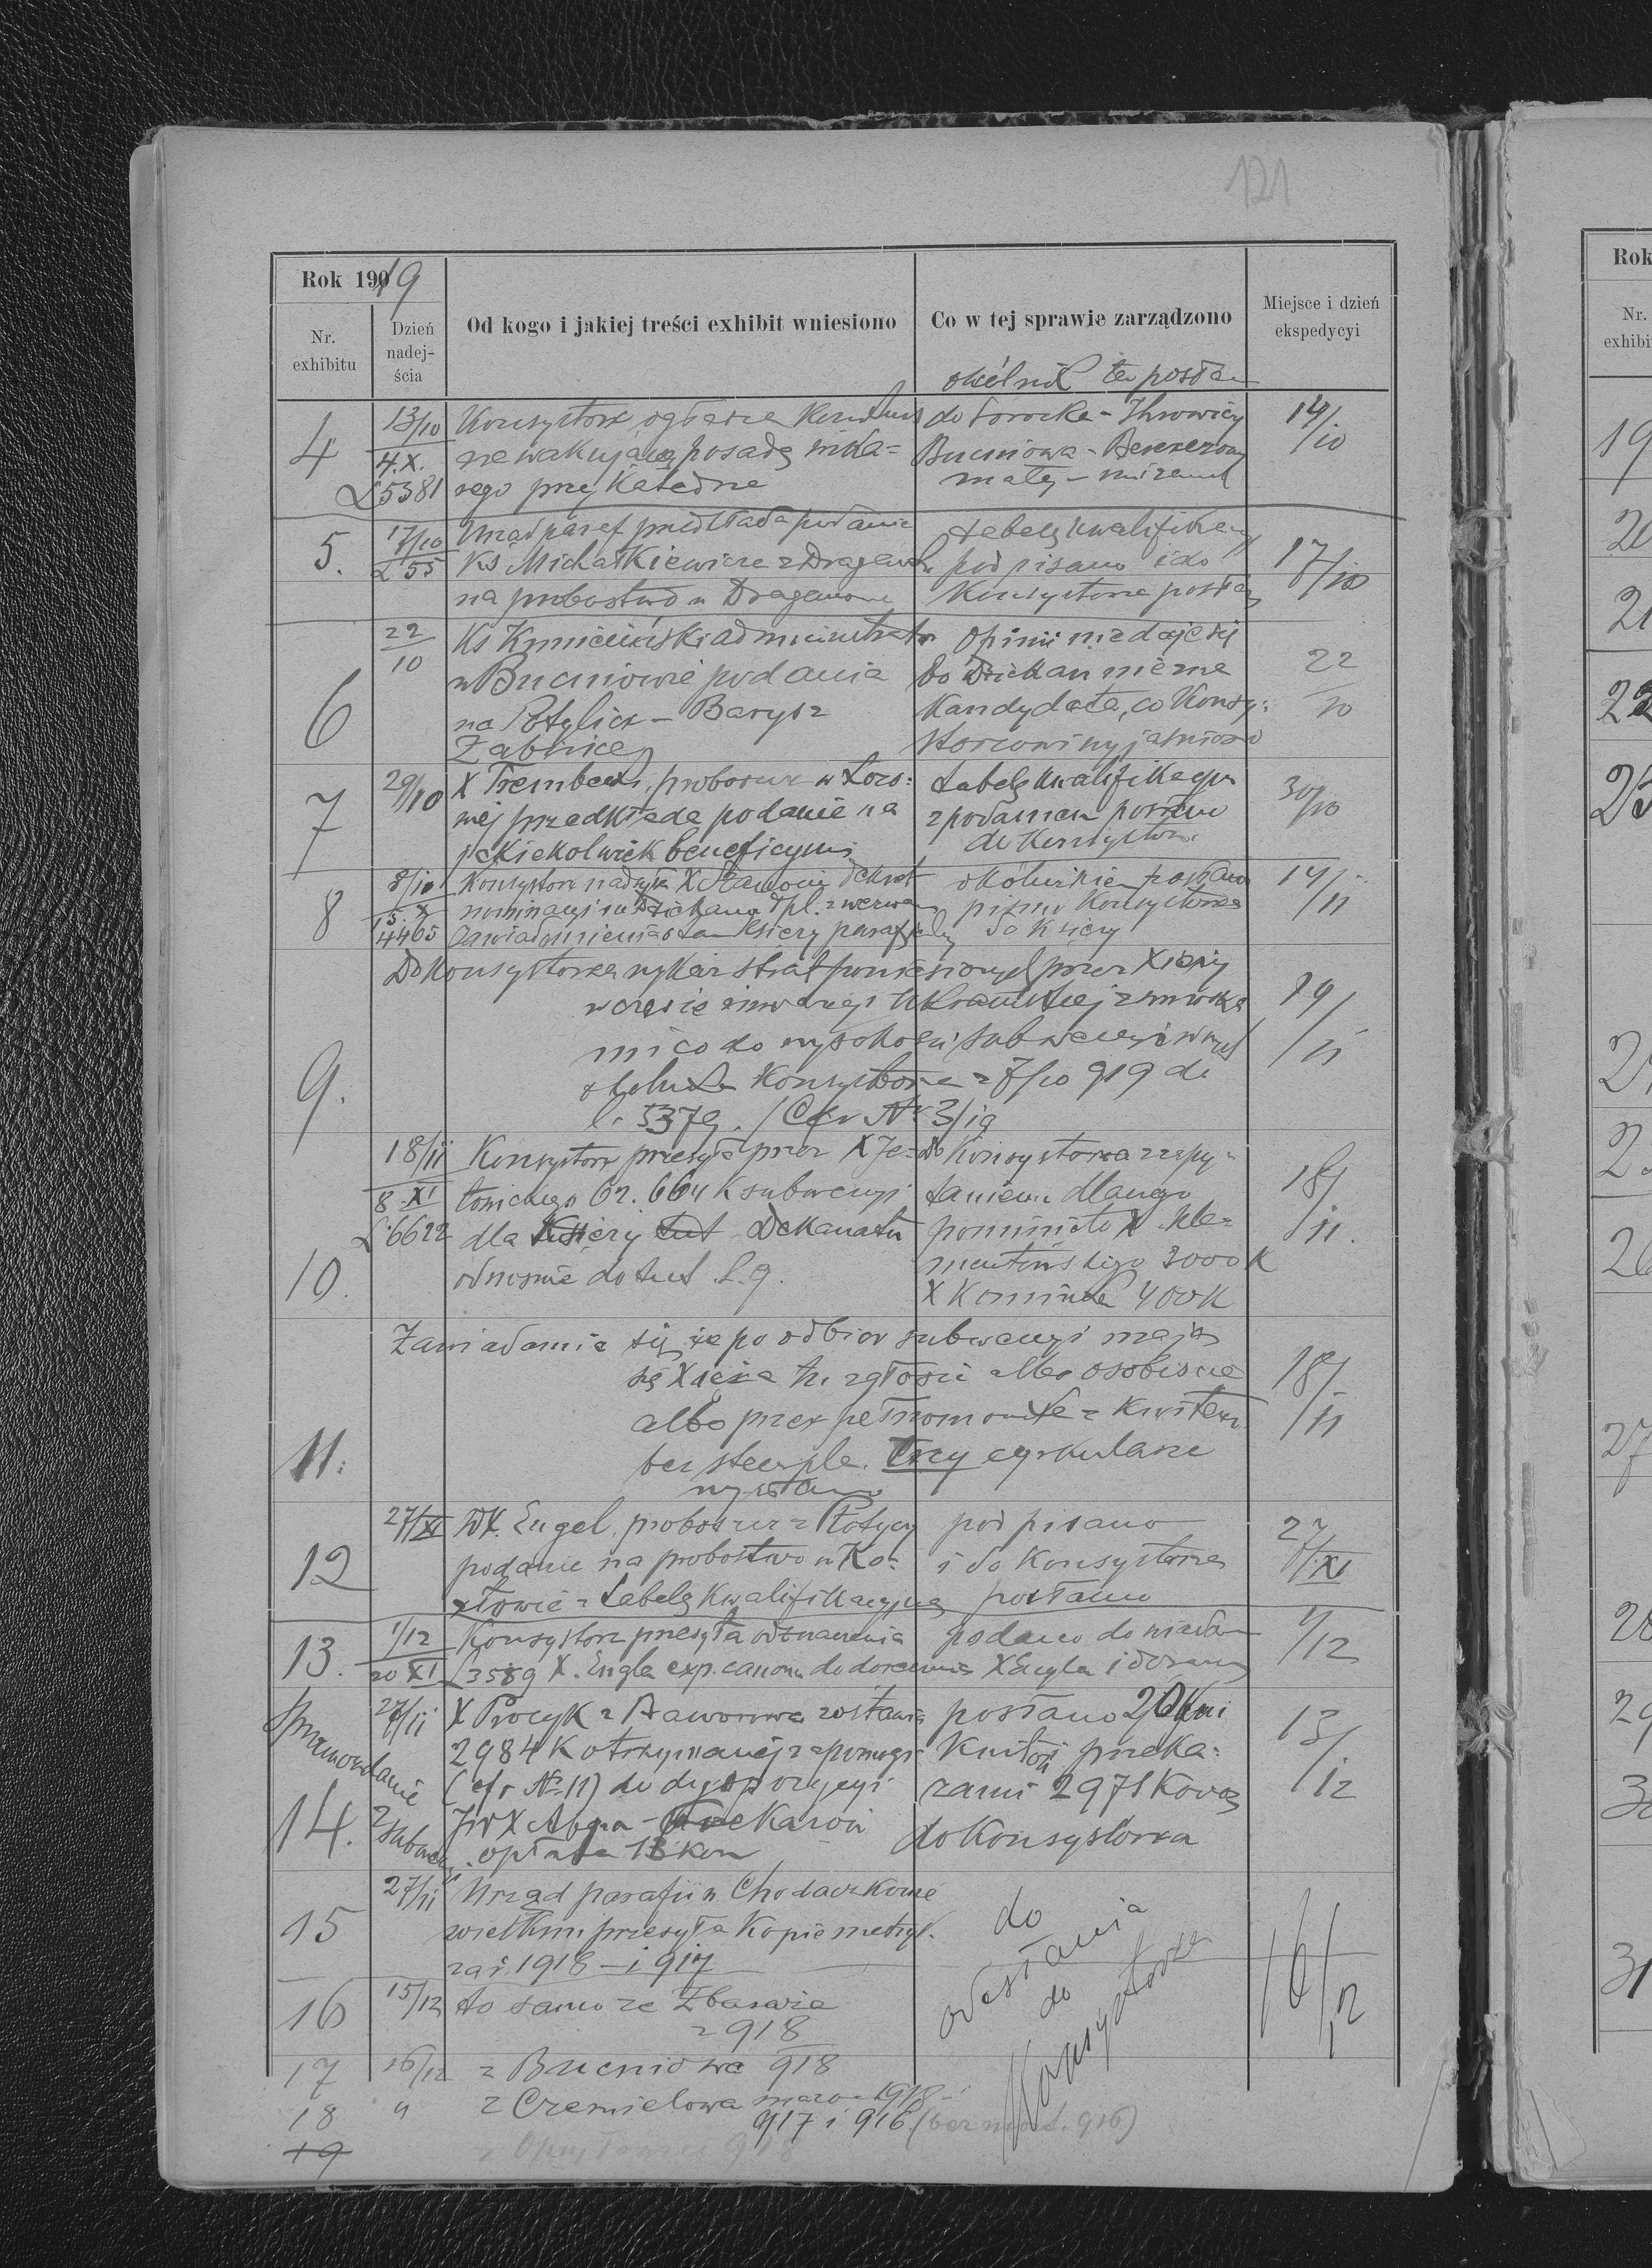 121
Rok 1919
Nr. exhibitu
Dzień nadej- ścia
Od kogo i jakiej treści exhibit wniesiono
Co w tej sprawie zarządzono
Miejsce i dzień ekspedycyi
okólnik ten posłan
4
13/10
4.X.
L 5381
Konsystorz ogłasza Konkurs
na wakującą posadę wika=
rego przy Katedrze
do Borocka - Ihrowicy
Bucniowa - Berezowicy
małej -
14/10
5.
17/10
L 55
Urząd paraf przedkłada podanie
Ks Michałkiewicza z Draganówki
na probostwo w Draganowce
tabelę kwalifikacyj
podpisano i do
Konsystorza posłano
17/10
6
22
10
Ks Kmiciński administrator
w Bucniowie podania
na Potylicz - Barysz
Żabnice
Opinii nie daje się
bo Dziekan nie zna
Kandydata, co Konsy=
storzowi wyjaśniono
22
10
7
29/10
X Trembecki, proboszcz w Łoso=
wej przedkłada podanie na
jakiekolwiek beneficyum
tabelę kwalifikacyjn
z podaniem posłano
do Konsystorz
30/10
8
8/10
15.X
4465
Konsystorz nadsyła X dekret
nominacyi na Dziekana Tpl. z wezwa
zawiadomienia o tem Księży parafialny
okólnikiem posłano
pismo Konsystorza
do Księży
14/11
9.
Do Konsystorza wykaz strat poniesionych przez Księży
w czasie inwazyi Ukraińskiej z wnioska
mi co do wysokości subwencyi w myśl
okólnika Konsystorza z 7/10 919 do
l. 5379. / Cfr Nr 3/19
19/11
10.
18/11
8 XI
L 6622
Konsystorz przesyła przez X Je=
łowickiego 62.664 K subwencyi
dla Księży tut Dekanatu
odnośnie do tut L.9.
do Konsystorza z zapy=
taniem dlaczego
pominięto X Kle=
mentowskiego 3000 K
X Kominka 400 K
18/11.
11.
Zawiadamia się, że po odbiór subwencyi mają
się Księża tu zgłosić albo osobiście
albo przez pełnomocnika z kwitem
bez stempla. Trzy cyrkularze
wysłano
18/11
12
27/XI
WX. Engel, proboszcz z Płotycy
podanie na probostwo w Ko=
złowie z tabelą kwalifikacyjną
podpisano
i do Konsystorza
posłano
27/XI
13.
1/12
20 XI
Konsystorz przesyła odznaczenia
L 3589 X. Engla exp. canon. do doręczenia
podano do wiadom
X Engla i
1/12
Sprawozdanie
z subwencyi
14.
27/11
X Procyk z Baworowa zostawia
2984 K otrzymanej zapomogi
(cfr Nr 11) do dyspozycyi
JW X Abpa - przekazow
opłata 13 kor
posłano 20 kwi
kwitów przeka=
zami 2971 Koron
do Konsystorza
13/12
15
27/11
Urząd parafii w Chodaczkowie
wielkim przesyła kopie metryk.
za r. 1918 - i 917
do
odesłania
do
Konsystorza
16/12
16
15/12
to samo ze Zbaraża
z 918
17
16/12
z Bucniowa 918
18
"
z Czernielowa mazow 1918 -
917 i 916 (bez 916)
19